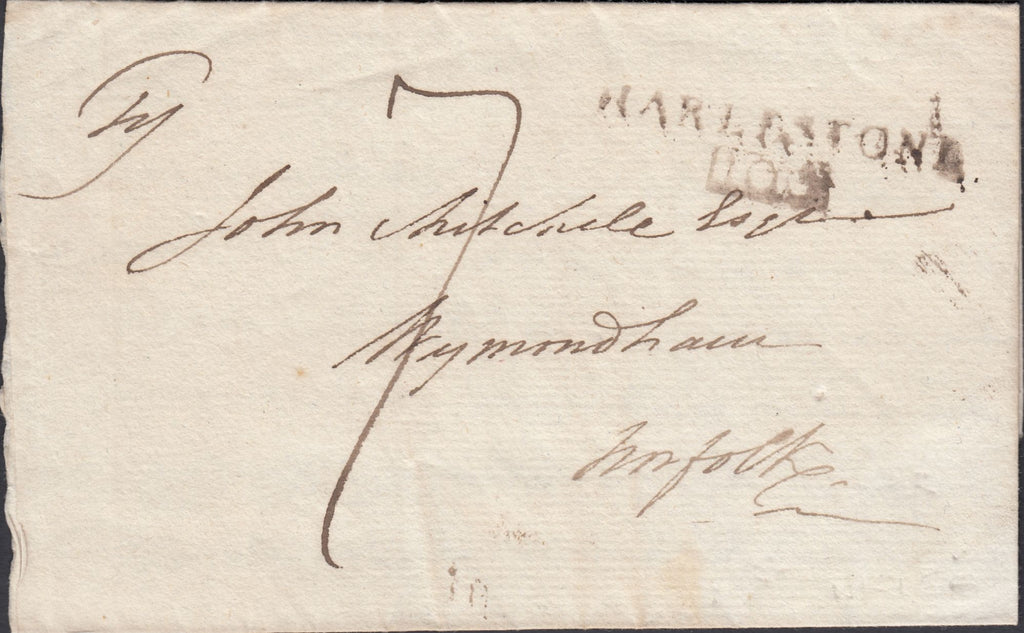 7
HARLESTON
John Mitchele Esqr
Wymondham
Norfolk